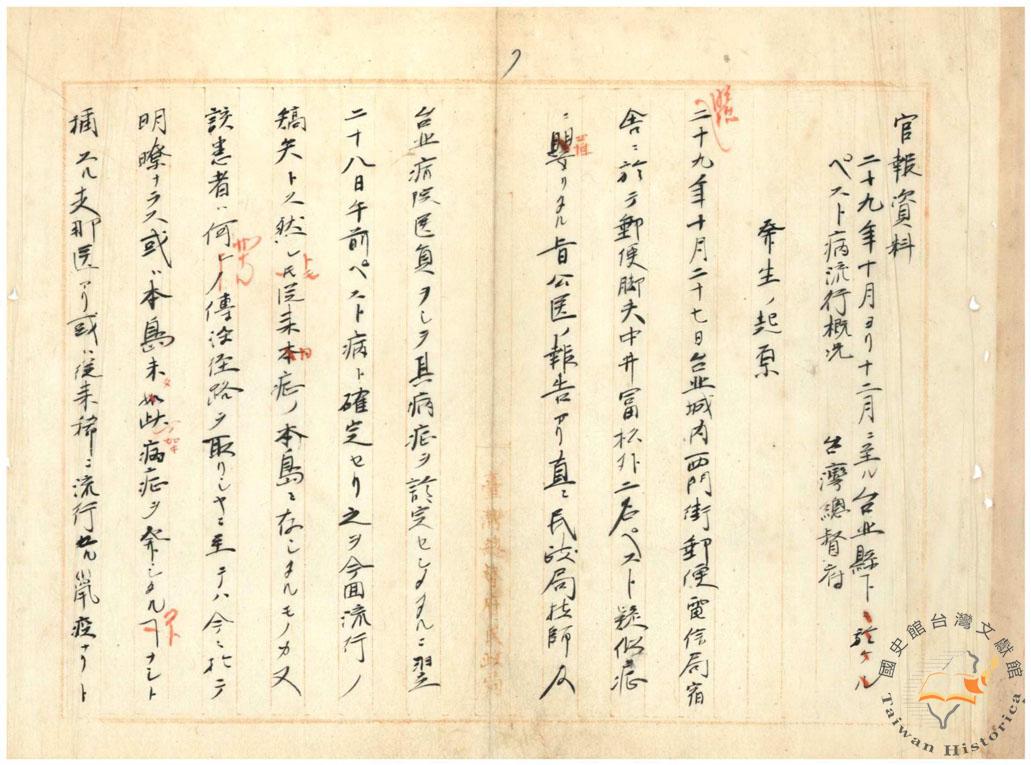 官報資料
二十九年十月ヨリ十二月ニ至ル台北縣下ニ於ケル
ペスト病流行概況
台湾總督府
発生ノ起原
二十九年十月二十七日台北城内西門街郵便電信局宿
舎ニ於テ郵便脚夫中井冨松外二名ペスト疑似症
ニ罹リタル旨公医ノ報告アリ直ニ民政局技師及
台北病院医員ヲシテ其病症ヲ診定セシメタルニ翌
二十八日午前ペスト病ト確定セリ之ヲ今回流行ノ
矢トス然レトモ従来本症ノ本島ニ存シタルモノカ又
該患者ハ何レノ傳染径路ヲ取リシヤニ至テハ今ニ於テ
明瞭ナラス或ハ本島未タ如此病症ヲ発シタルコトナシト
スル支那医アリ或ハ従来稀ニ流行セル鼠疫ナリト
臺灣總督府民政局
國史館台灣文獻館
Taiwan Historica